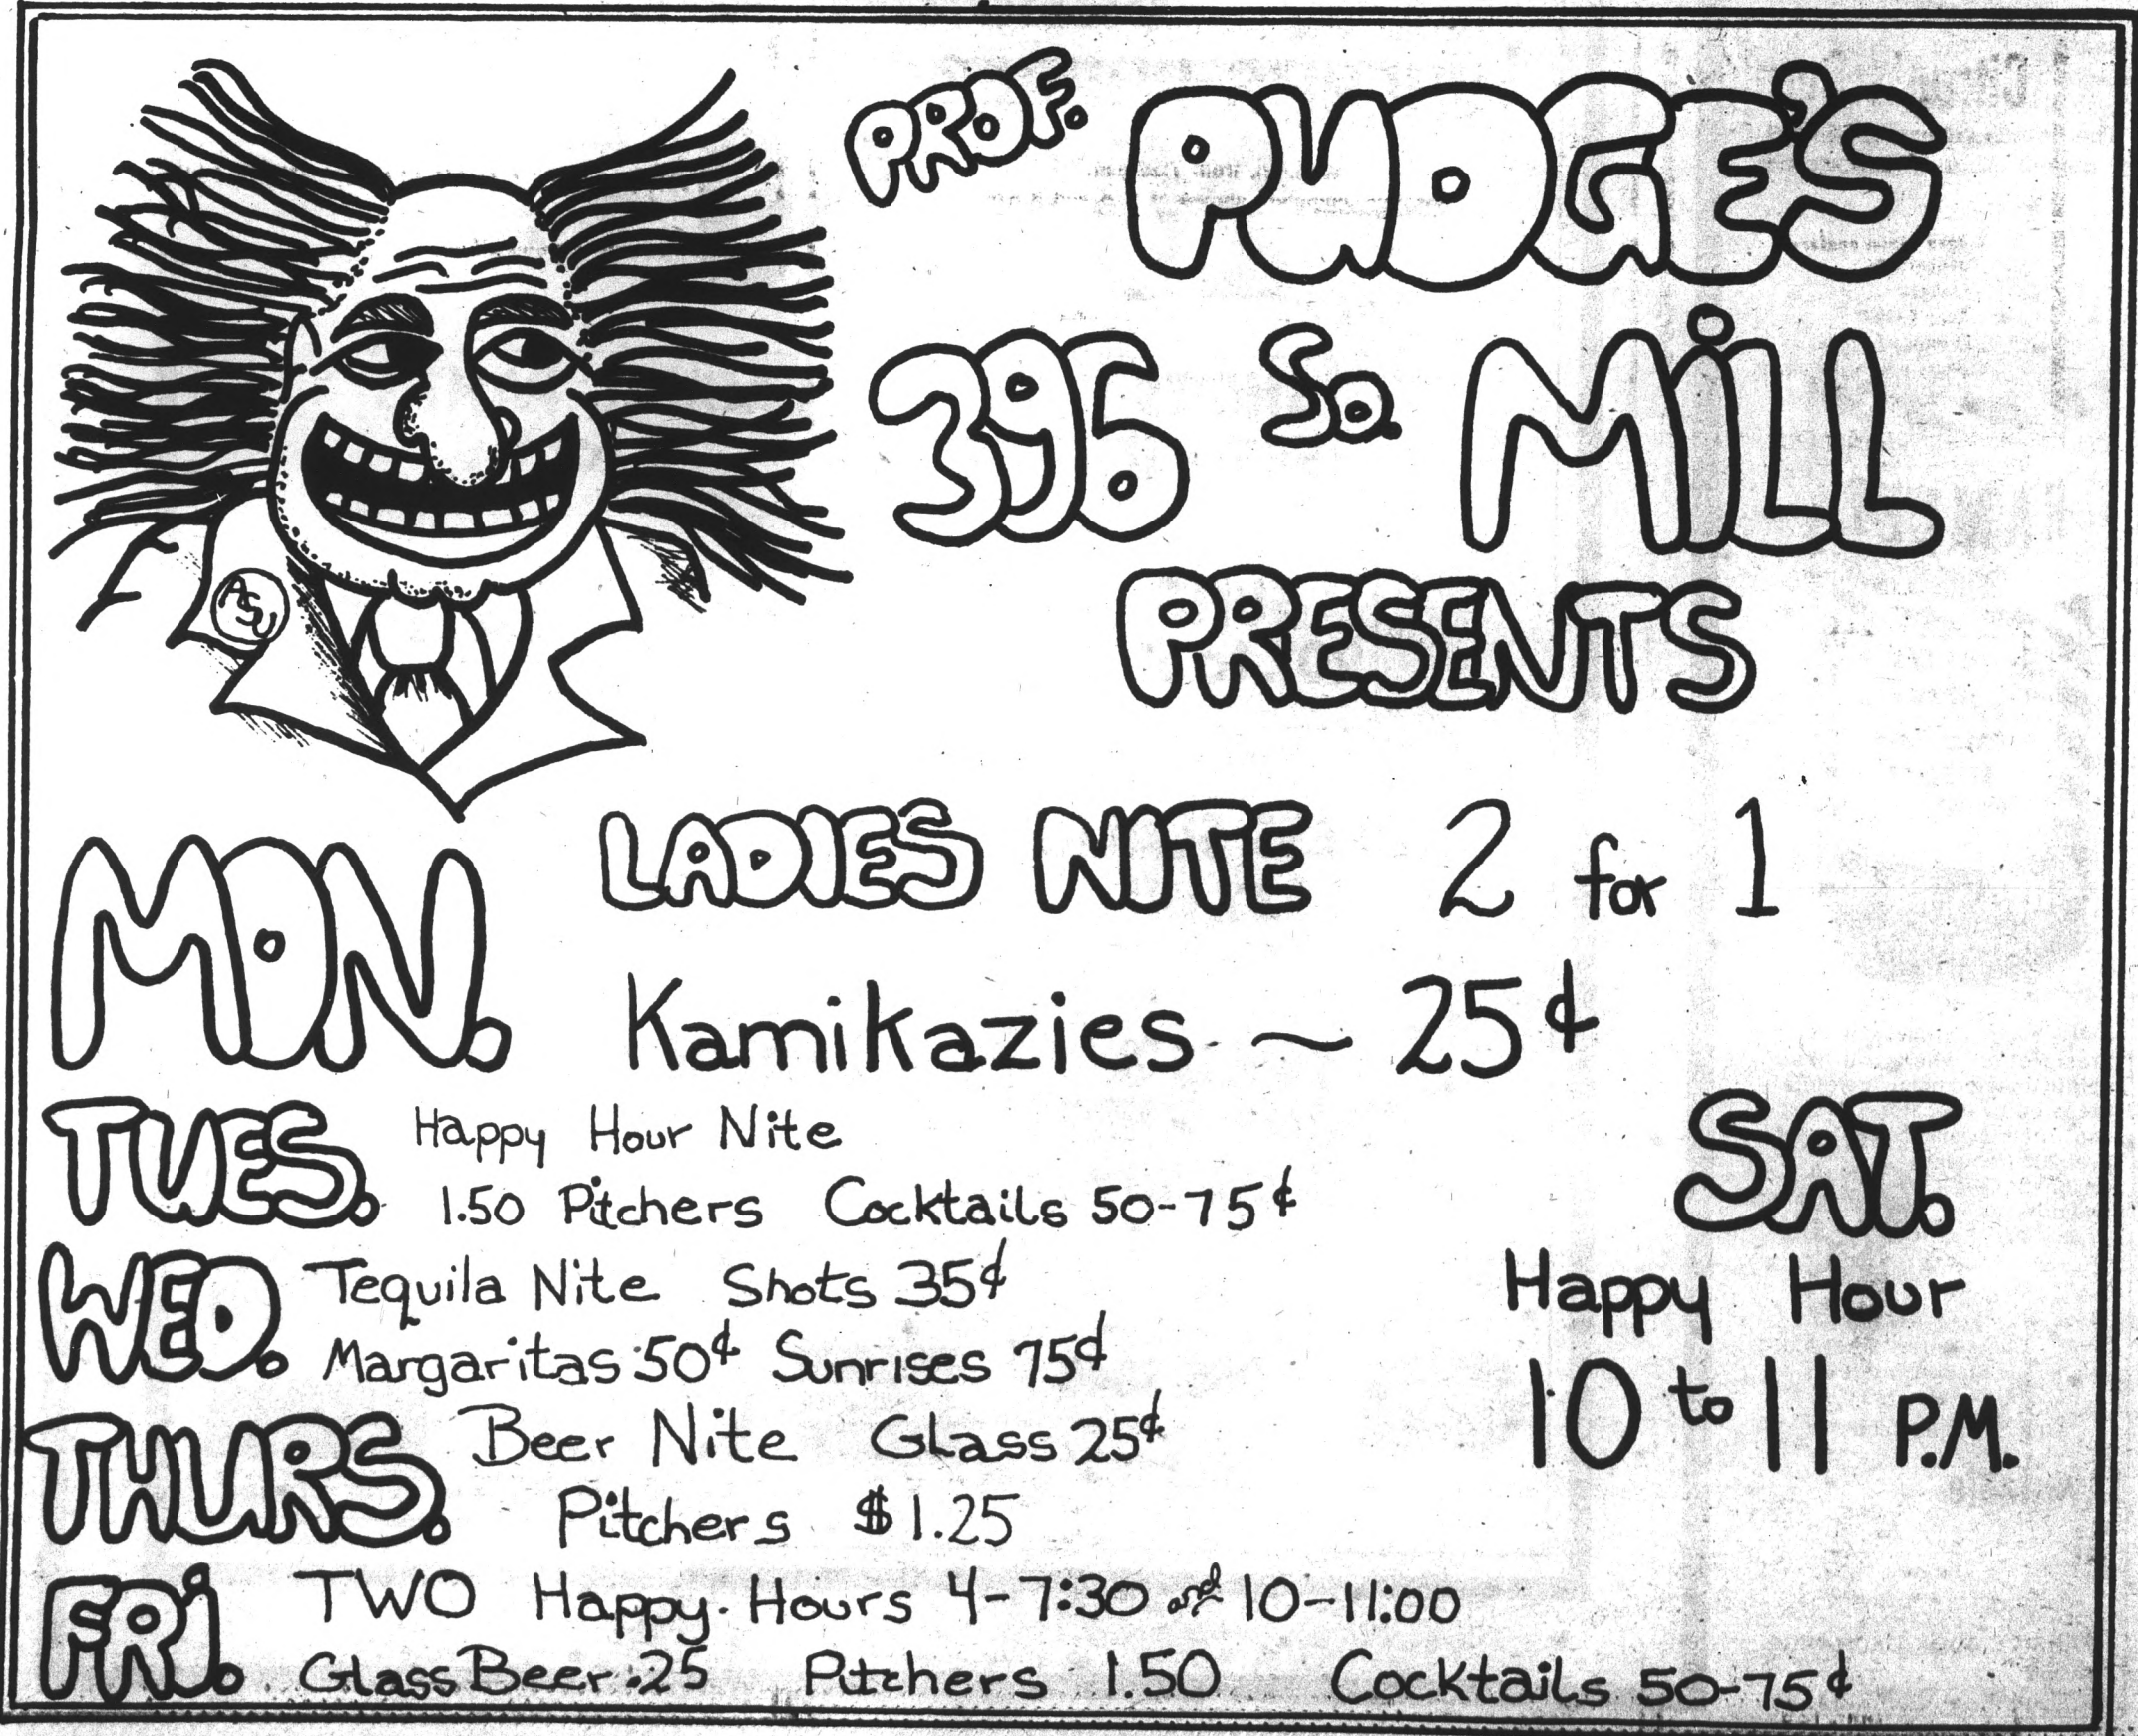 PROF. PUDGE'S
396 So. MiLL
PRESENTS
ASU
MON. LADIES NITE 2 for 1
Kamikazies ~ 25¢
TUES. Happy Hour Nite
1.50 Pitchers Cocktails 50-75¢
WED. Tequila Nite Shots 35¢
Margaritas 50¢ Sunrises 75¢
THURS. Beer Nite Glass 25¢
Pitchers $1.25
FRi. TWO Happy Hours 4-7:30 and 10-11:00
Glass Beer .25 Pitchers 1.50 Cocktails 50-75¢
SAT.
Happy Hour
10 to 11 P.M.